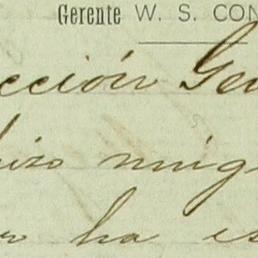 Gerente W. S. CON
cción Gen
hizo ning
ro ha es